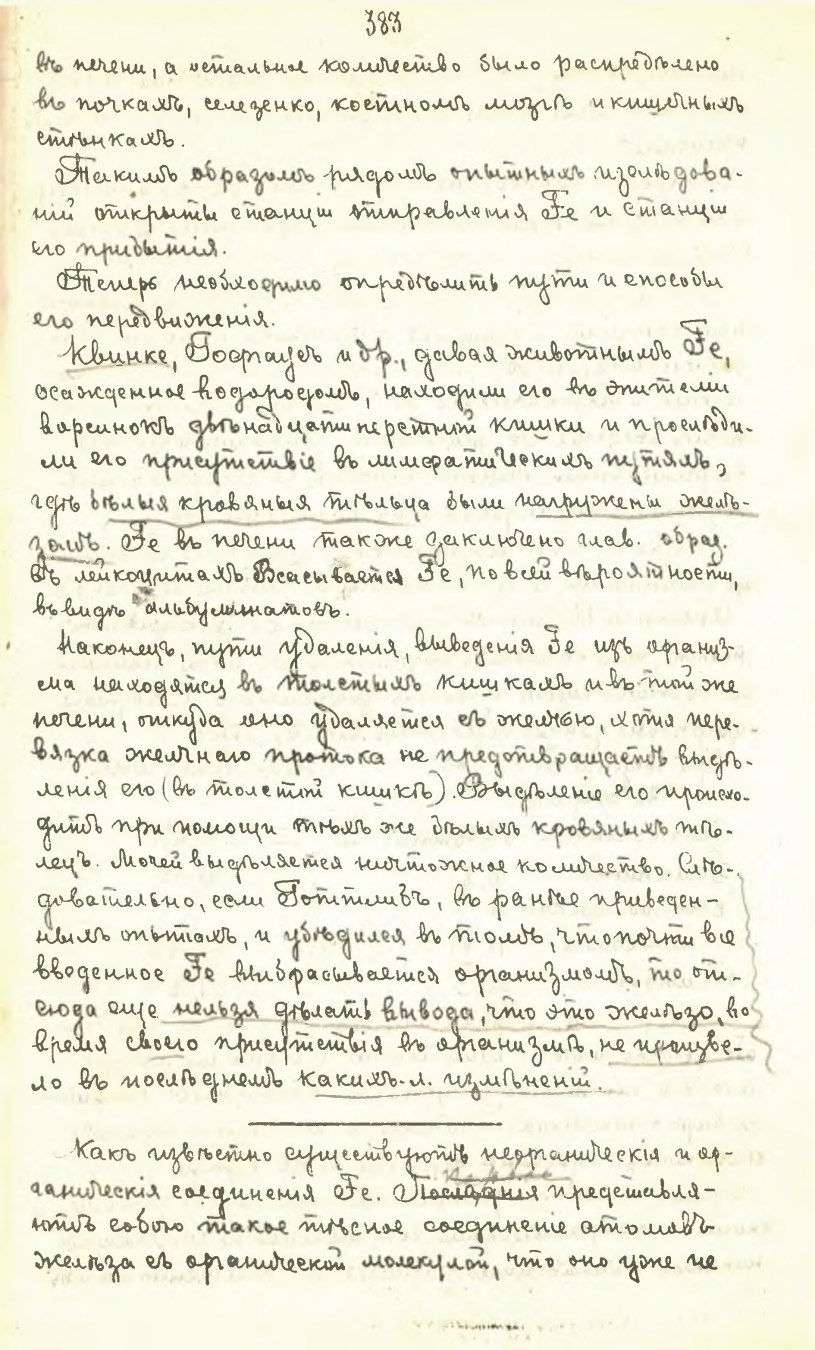 383
въ печени, а остальное количество было распредѣлено
въ почкахъ, селезенкѣ, костномъ мозгѣ и кишечныхъ
стѣнкахъ.
Такимъ образомъ рядомъ опытныхъ изслѣдова-
ній открыты станціи отправленія Fe и станціи
его прибытія.
Теперь необходимо опредѣлить пути и способы
его передвиженія.
Квинке, Гофгаусъ и др., давая животнымъ Fe,
осажденное водородомъ, находили его въ эпителіи
ворсинокъ двѣнадцатиперстной кишки и прослѣди-
ли его присутствіе въ лимфатическихъ путяхъ,
гдѣ бѣлыя кровяныя тѣльца были нагружены желѣ-
зомъ. Fe въ печени также заключено глав. образ.
въ лейкоцитахъ Всасывается Fe, по всей вѣроятности,
въ видѣ альбуминатовъ.
Наконецъ, пути удаленія, выведенія Fe изъ организ-
ма находятся въ толстыхъ кишкахъ и въ той же
печени, откуда оно удаляется съ желчью, хотя пере-
вязка желчнаго протока не предотвращаетъ выдѣ-
ленія его (въ толстой кишкѣ). Выдѣленіе его происхо-
дитъ при помощи тѣхъ же бѣлыхъ кровяныхъ тѣ-
лецъ. Мочей выдѣляется ничтожное количество. Слѣ-
довательно, если Готтлибъ, въ ранѣе приведен-
ныхъ опытахъ, и убѣдился въ томъ, что почти все
введенное Fe выбрасывается организмомъ, то от-
сюда еще нельзя дѣлать вывода, что это желѣзо, во
время своего присутствія въ организмѣ, не произве-
ло въ послѣднемъ какихъ-л. измѣненій.
Какъ извѣстно существуютъ неорганическія и ор-
ганическія соединенія Fe. Послѣднія представля-
ютъ собою такое тѣсное соединеніе атомовъ
желѣза съ органической молекулой, что оно уже не